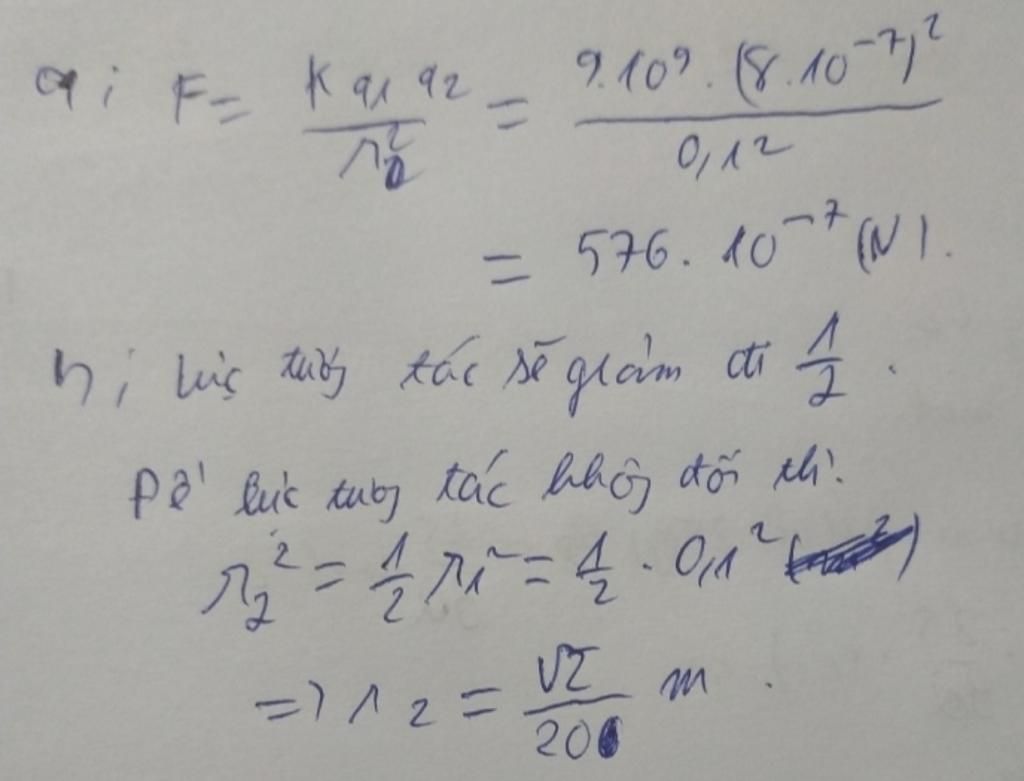 a; F = K q1 q2 / r² = 9.10⁹. (8.10⁻⁷)² / 0,1²
= 576. 10⁻⁷ (N).
b; Lực tương tác sẽ giảm đi 1/2.
Để lực tương tác không đổi thì.
r₂² = 1/2 r₁² = 1/2 . 0,1²
=> r₂ = √2/20 m.